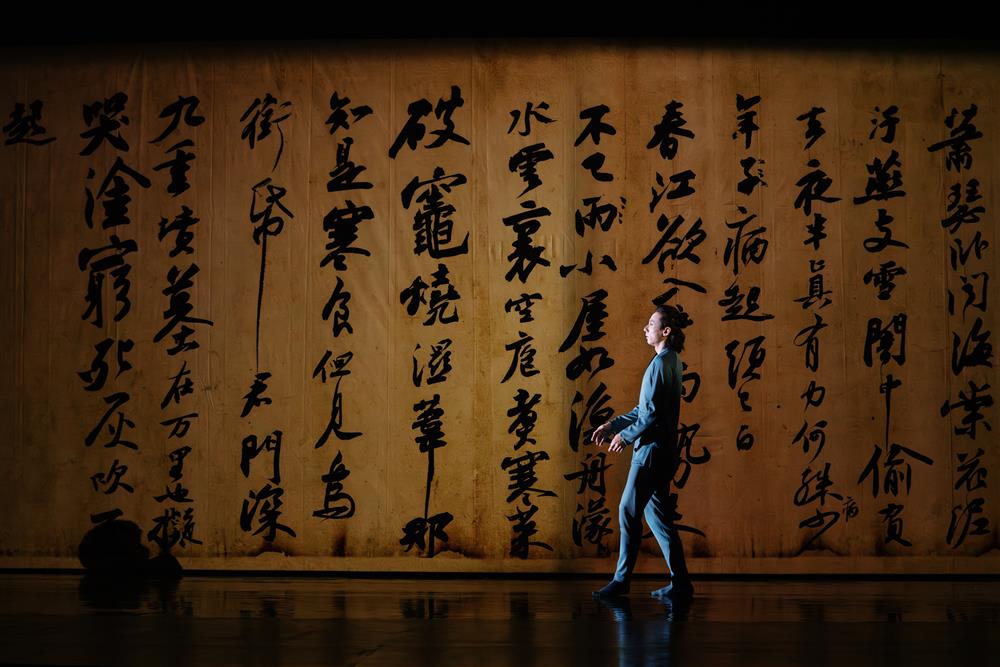 蕭瑟臥聞海棠花泥
汙燕支雪闇中偷負
去夜半真有力何殊少病
年子病起頭已白
春江欲入雨勢來
不已雨小屋如漁舟濛
水雲裏空庖煮寒菜
破竈燒濕葦那
知是寒食但見烏
銜帋君門深
九重墳墓在萬里也擬
哭塗窮死灰吹
起